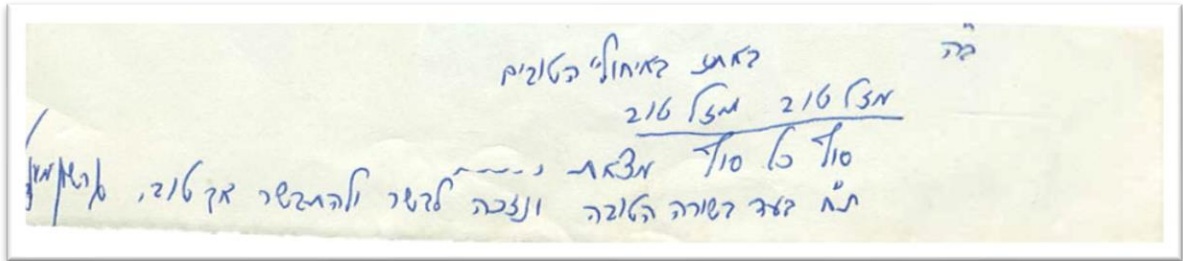 ב"ה
באתי באיחוליי הטובים
מזל טוב מזל טוב
סוף כל סוף מצאת ......
ת"ח בעד בשורה הטובה ונזכה לבשר ולהתבשר אך טוב,